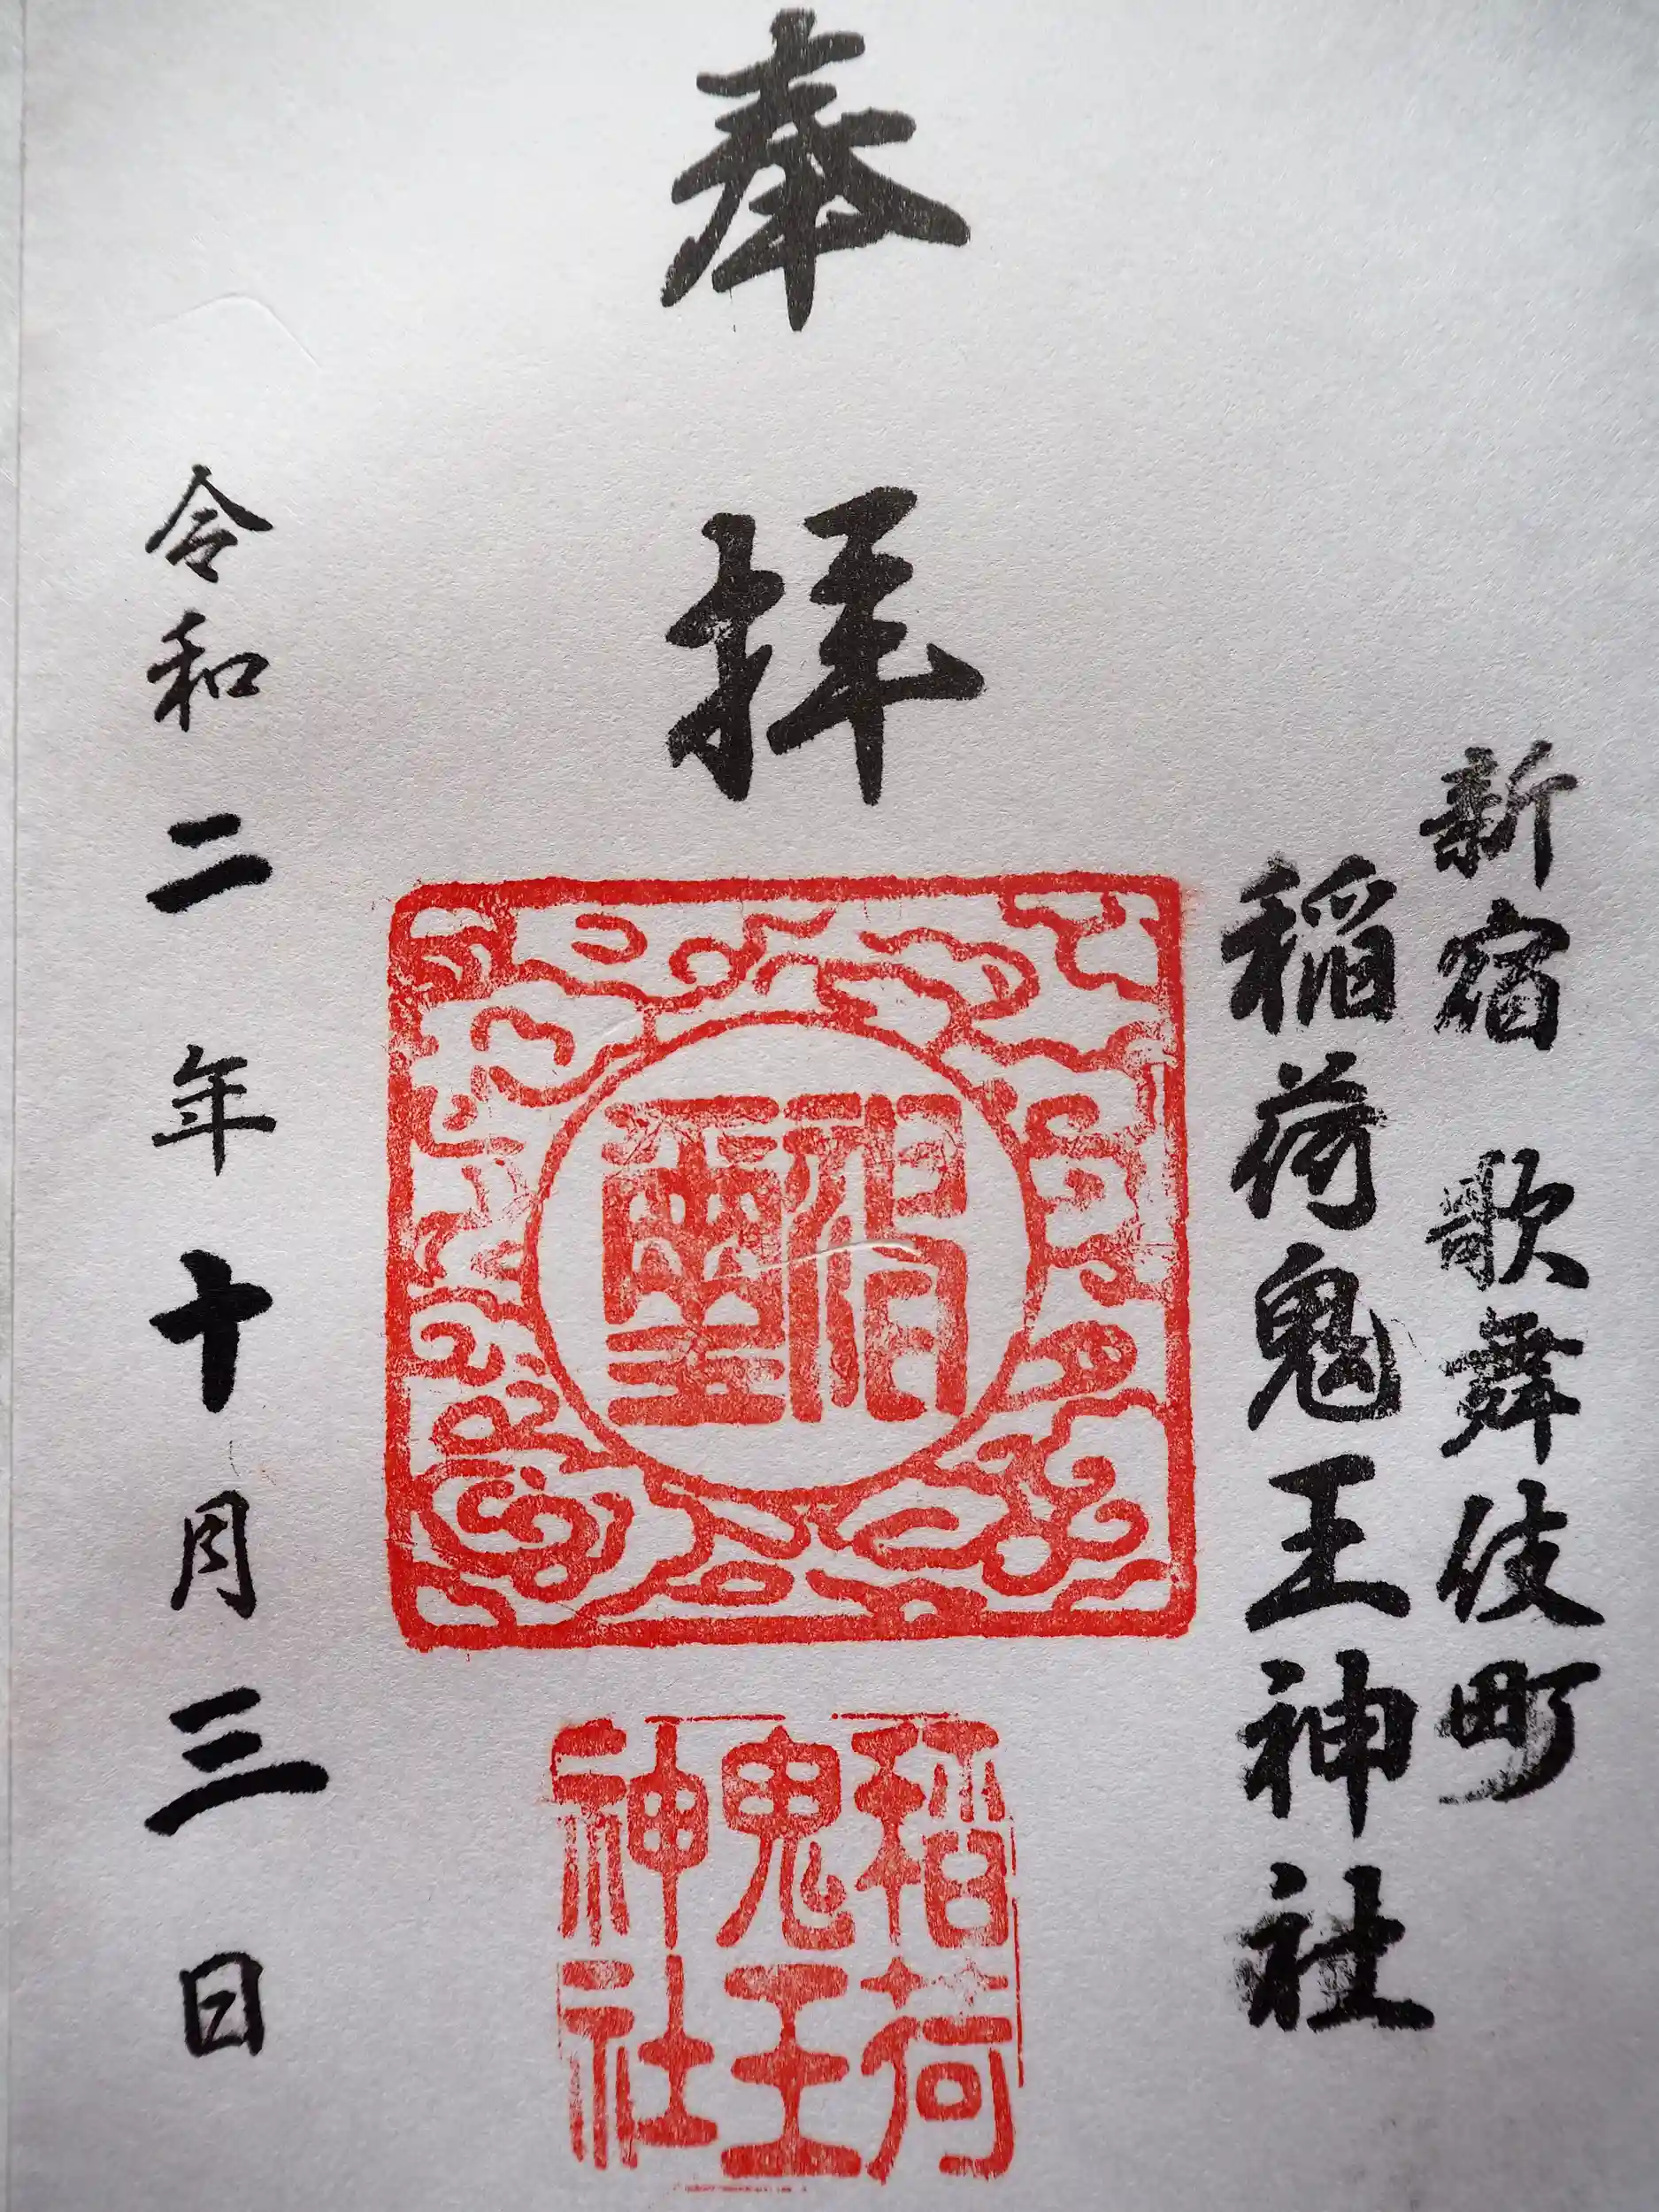 新宿 歌舞伎町
稲荷鬼王神社
奉拝
稲荷
鬼王
神社
令和二年十月三日